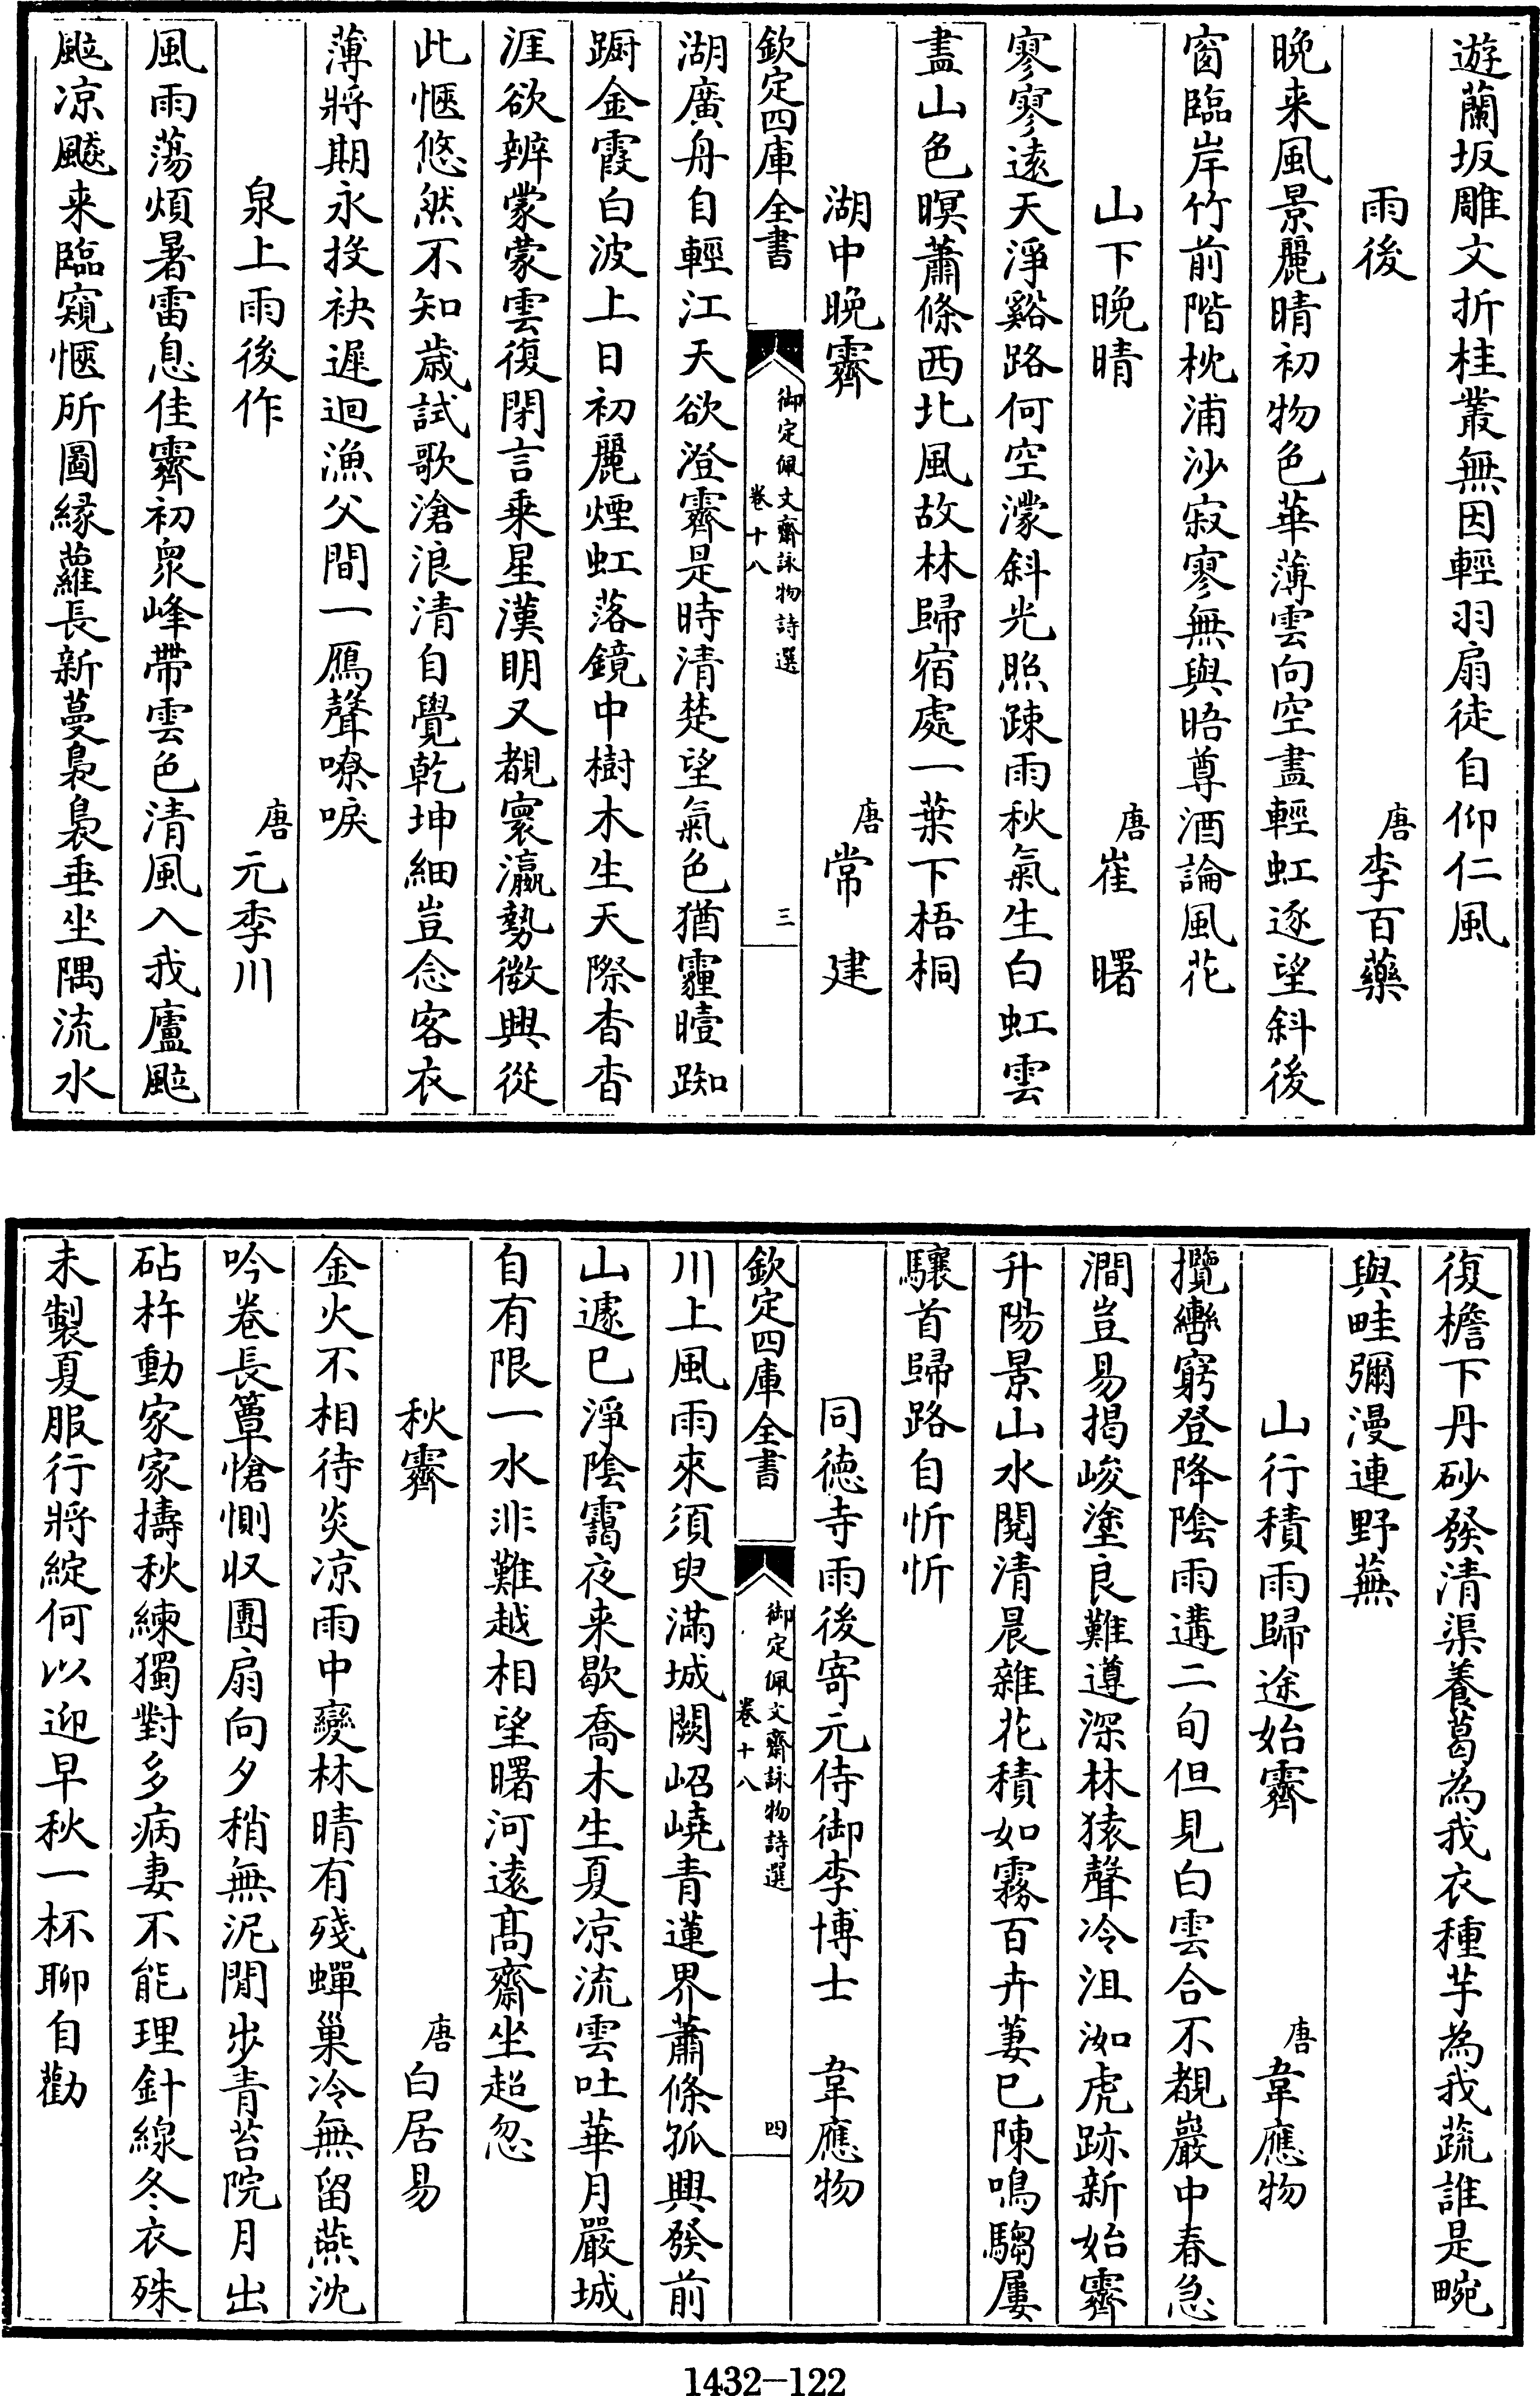 遊蘭坂雕文折桂叢無因輕羽扇徒自仰仁風
雨後 唐 李百藥
晚来風景麗晴初物色華薄雲向空盡輕虹逐望斜後
窗臨岸竹前階枕浦沙寂寥無與晤尊酒論風花
山下晚晴 唐 崔曙
寥寥遠天淨谿路何空濛斜光照疎雨秋氣生白虹雲
盡山色暝蕭條西北風故林歸宿處一葉下梧桐
湖中晚霽 唐 常建
欽定四庫全書 御定佩文齋詠物詩選 卷十八 三
湖廣舟自輕江天欲澄霽是時清楚望氣色猶霾曀踟
蹰金霞白波上日初麗煙虹落鏡中樹木生天際杳杳
涯欲辨蒙蒙雲復閉言乗星漢明又覩寰瀛勢微興從
此愜悠然不知歲試歌滄浪清自覺乾坤細豈念客衣
薄將期永投袂遲迴漁父間一鴈聲嘹唳
泉上雨後作 唐 元季川
風雨蕩煩暑雷息佳霽初衆峰帶雲色清風入我廬颭
颭凉飈来臨窺愜所圖縁蘿長新蔓裊裊垂坐隅流水
復檐下丹砂發清渠養葛為我衣種芋為我蔬誰是畹
與畦彌漫連野蕪
山行積雨歸途始霽 唐 韋應物
攬轡窮登降陰雨遘二旬但見白雲合不覩巖中春急
澗豈易揭峻塗良難遵深林猿聲冷沮洳虎跡新始霽
升陽景山水閱清晨雜花積如霧百卉萋已陳鳴騶屢
驤首歸路自忻忻
同徳寺雨後寄元侍御李博士 韋應物
欽定四庫全書 御定佩文齋詠物詩選 卷十八 四
川上風雨來須臾滿城闕岧嶢青蓮界蕭條孤興發前
山遽已淨陰靄夜来歇喬木生夏凉流雲吐華月嚴城
自有限一水非難越相望曙河遠高齋坐超忽
秋霽 唐 白居易
金火不相待炎凉雨中變林晴有殘蟬巢冷無留燕沈
吟卷長簟愴惻收團扇向夕稍無泥閒步青苔院月出
砧杵動家家擣秋練獨對多病妻不能理針線冬衣殊
未製夏服行將綻何以迎早秋一杯聊自勸
1432-122